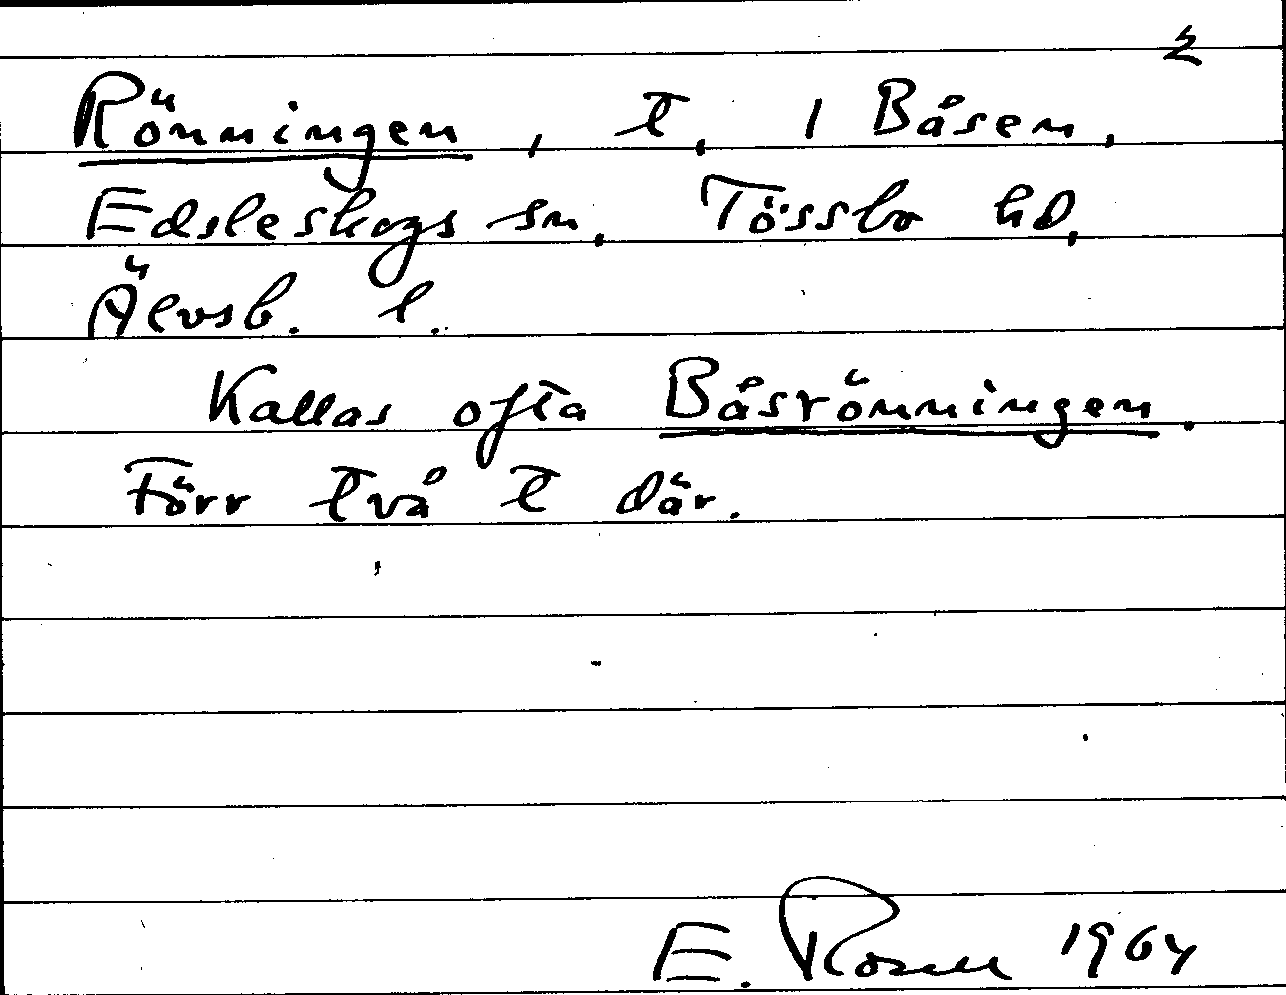 2
Rönningen, t. 1 Båsen,
Edsleskogs sn. Tössbo hd,
Älvsb. l.
Kallas ofta Båsrönningen.
Förr två t där.
E. Rosell 1964